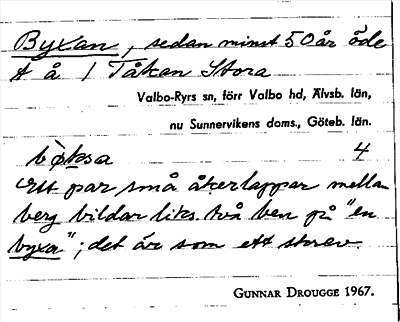 Byxan, sedan minst 50 år öde
t å / Tåkan Stora
Valbo-Ryrs sn, förr Valbo hd, Älvsb. län,
nu Sunnervikens doms., Göteb. län.
bøksa 4
Ett par små åkerlappar mellan
berg bildar liks. två ben på "en
byxa"; det är som ett
GUNNAR DROUGGE 1967.